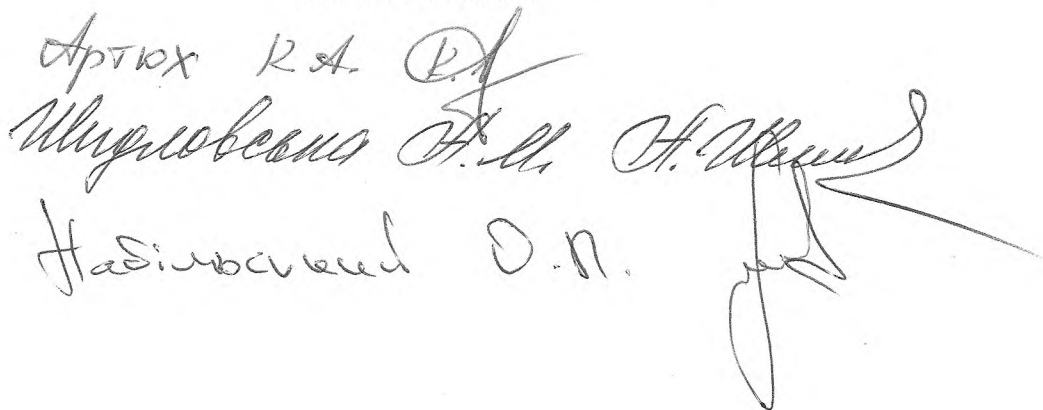 Артюх К.А.
Шидловська Н.М. Н.Ши
Набільський О.П.